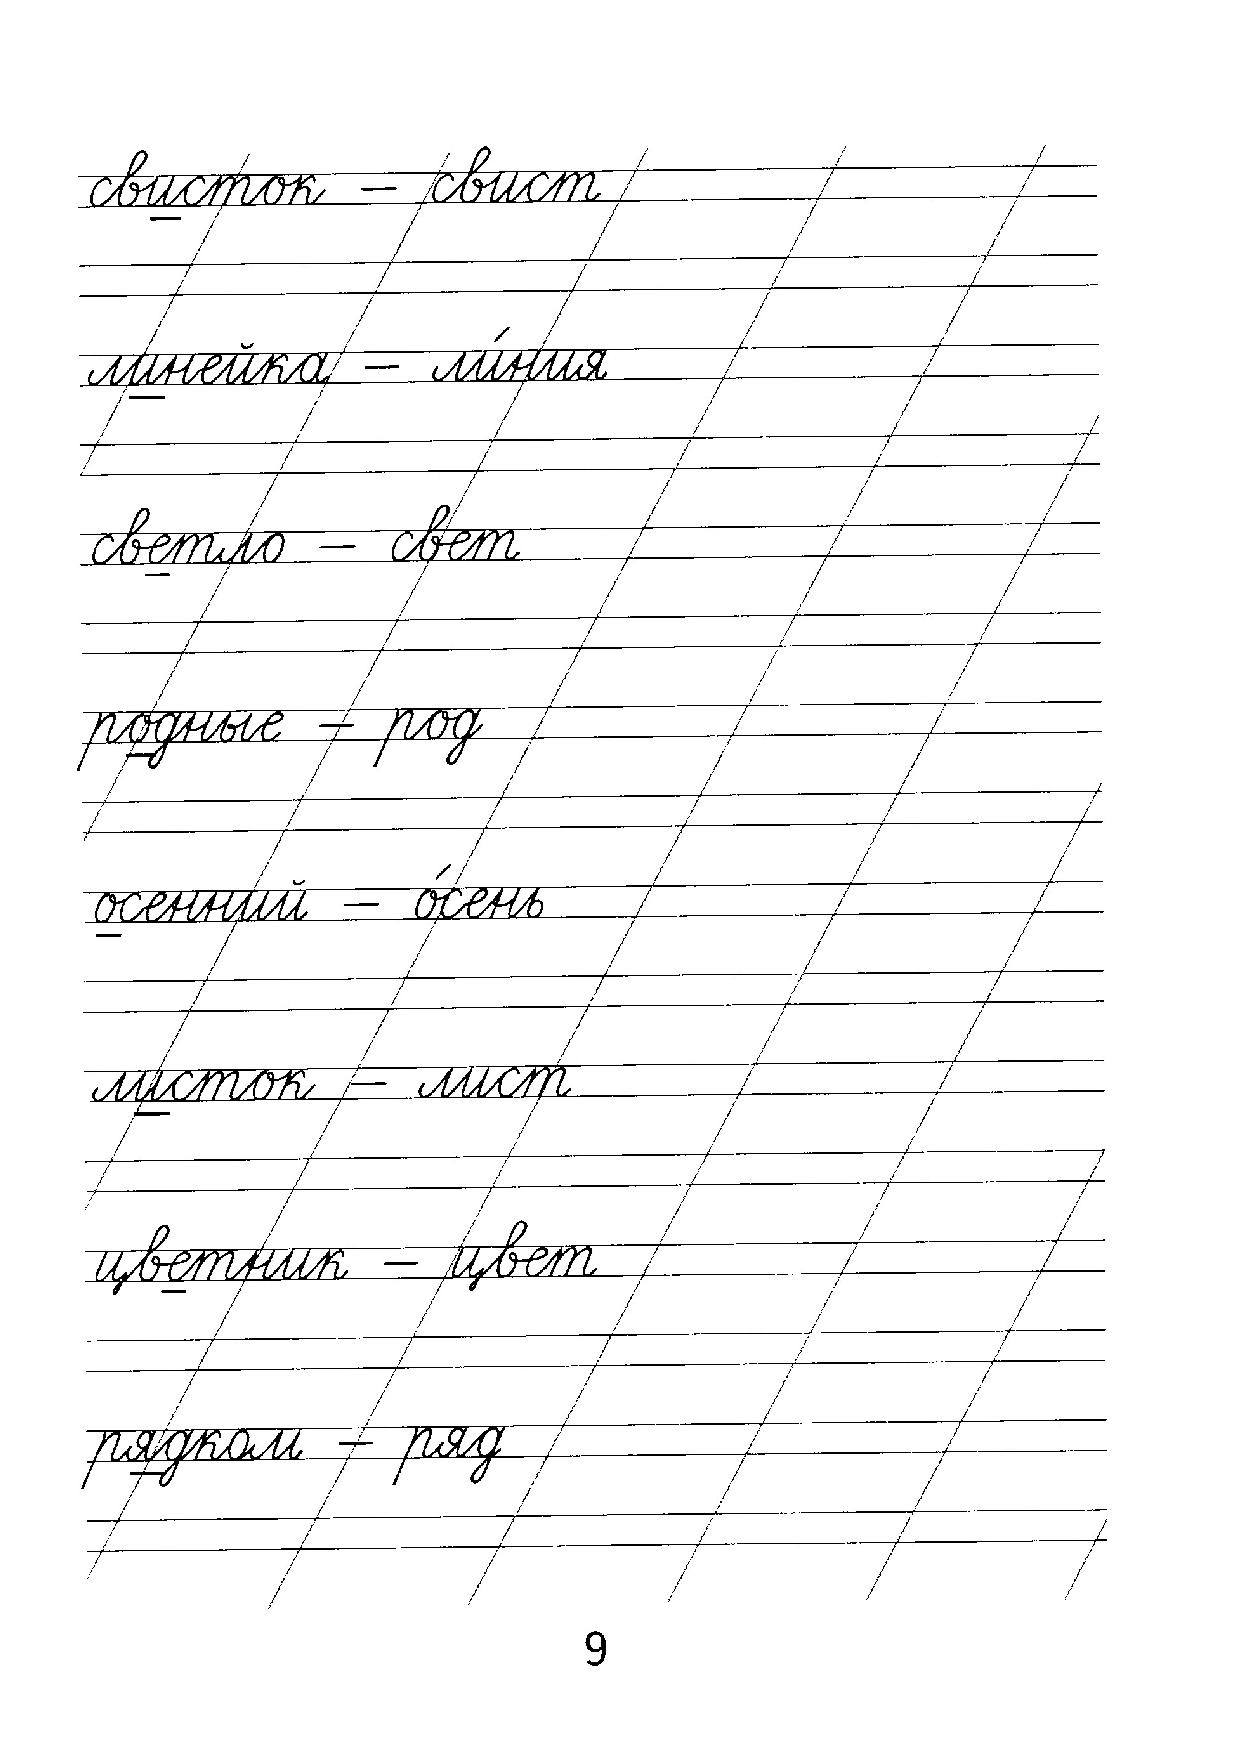 свисток – свист
линейка – ли́ния
светло – свет
родные – род
осенний – о́сень
листок – лист
цветник – цвет
рядком – ряд
9